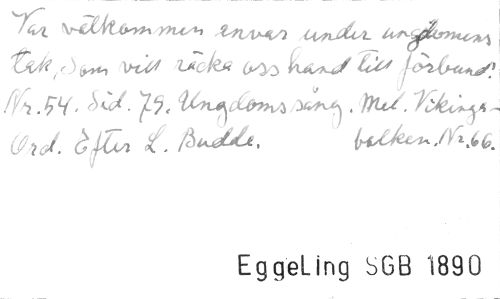 Var välkommen envar under ungdomens
tak, som vill räcka oss hand till förbund!
Nr. 54. Sid. 79. Ungdomssång. Mel. Vikinga-
Ord. Efter L. Budde. balken. Nr. 66.
EggeLing SGB 1890